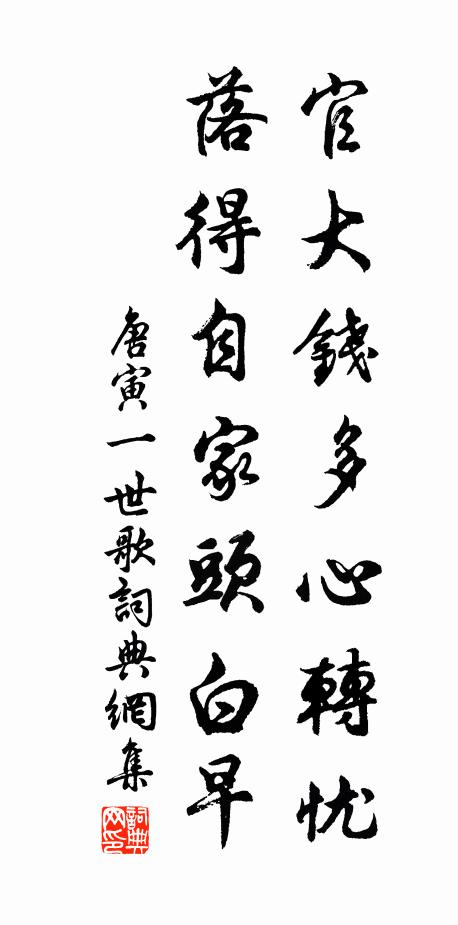 官大錢多心轉忧
落得自家頭白早
唐寅一世歌詞典網集
詞典网印